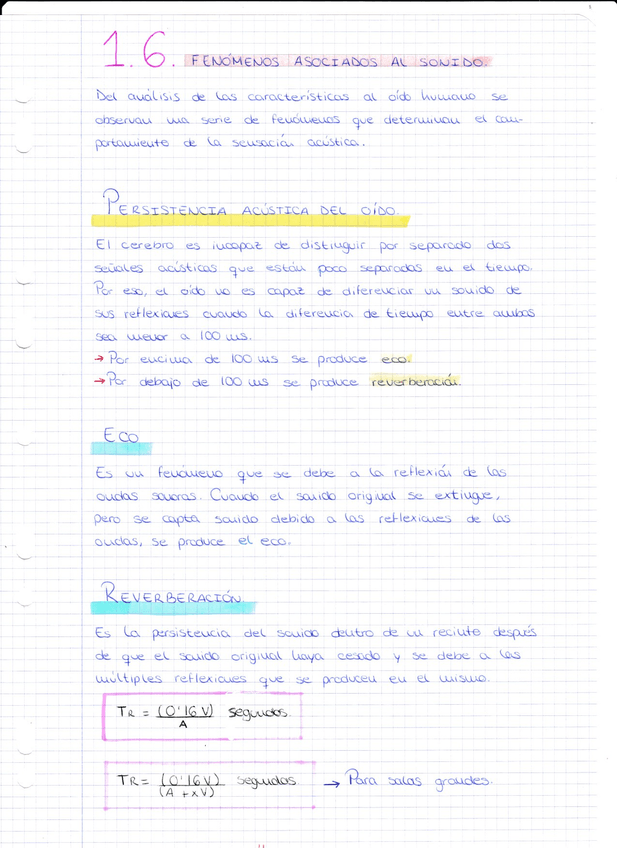 1.6. FENÓMENOS ASOCIADOS AL SONIDO.
Del análisis de las características al oído humano se
observan una serie de fenómenos que determinan el com-
portamiento de la sensación acústica.
PERSISTENCIA ACÚSTICA DEL OÍDO.
El cerebro es incapaz de distinguir por separado dos
señales acústicas que están poco separadas en el tiempo.
Por eso, el oído no es capaz de diferenciar un sonido de
sus reflexiones cuando la diferencia de tiempo entre ambas
sea menor a 100 ms.
→ Por encima de 100 ms se produce eco.
→ Por debajo de 100 ms se produce reverberación.
ECO
Es un fenómeno que se debe a la reflexión de las
ondas sonoras. Cuando el sonido original se extingue,
pero se capta sonido debido a las reflexiones de las
ondas, se produce el eco.
REVERBERACIÓN.
Es la persistencia del sonido dentro de un recinto después
de que el sonido original haya cesado y se debe a las
múltiples reflexiones que se producen en el mismo.
TR = (0'16 V) / A segundos.
TR = (0'16 V) / (A + xV) segundos → Para salas grandes.